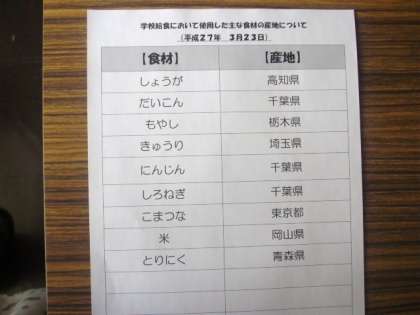 学校給食において使用した主な食材の産地について
(平成27年 3月23日)
【食材】 【産地】
しょうが 高知県
だいこん 千葉県
もやし 栃木県
きゅうり 埼玉県
にんじん 千葉県
しろねぎ 千葉県
こまつな 東京都
米 岡山県
とりにく 青森県